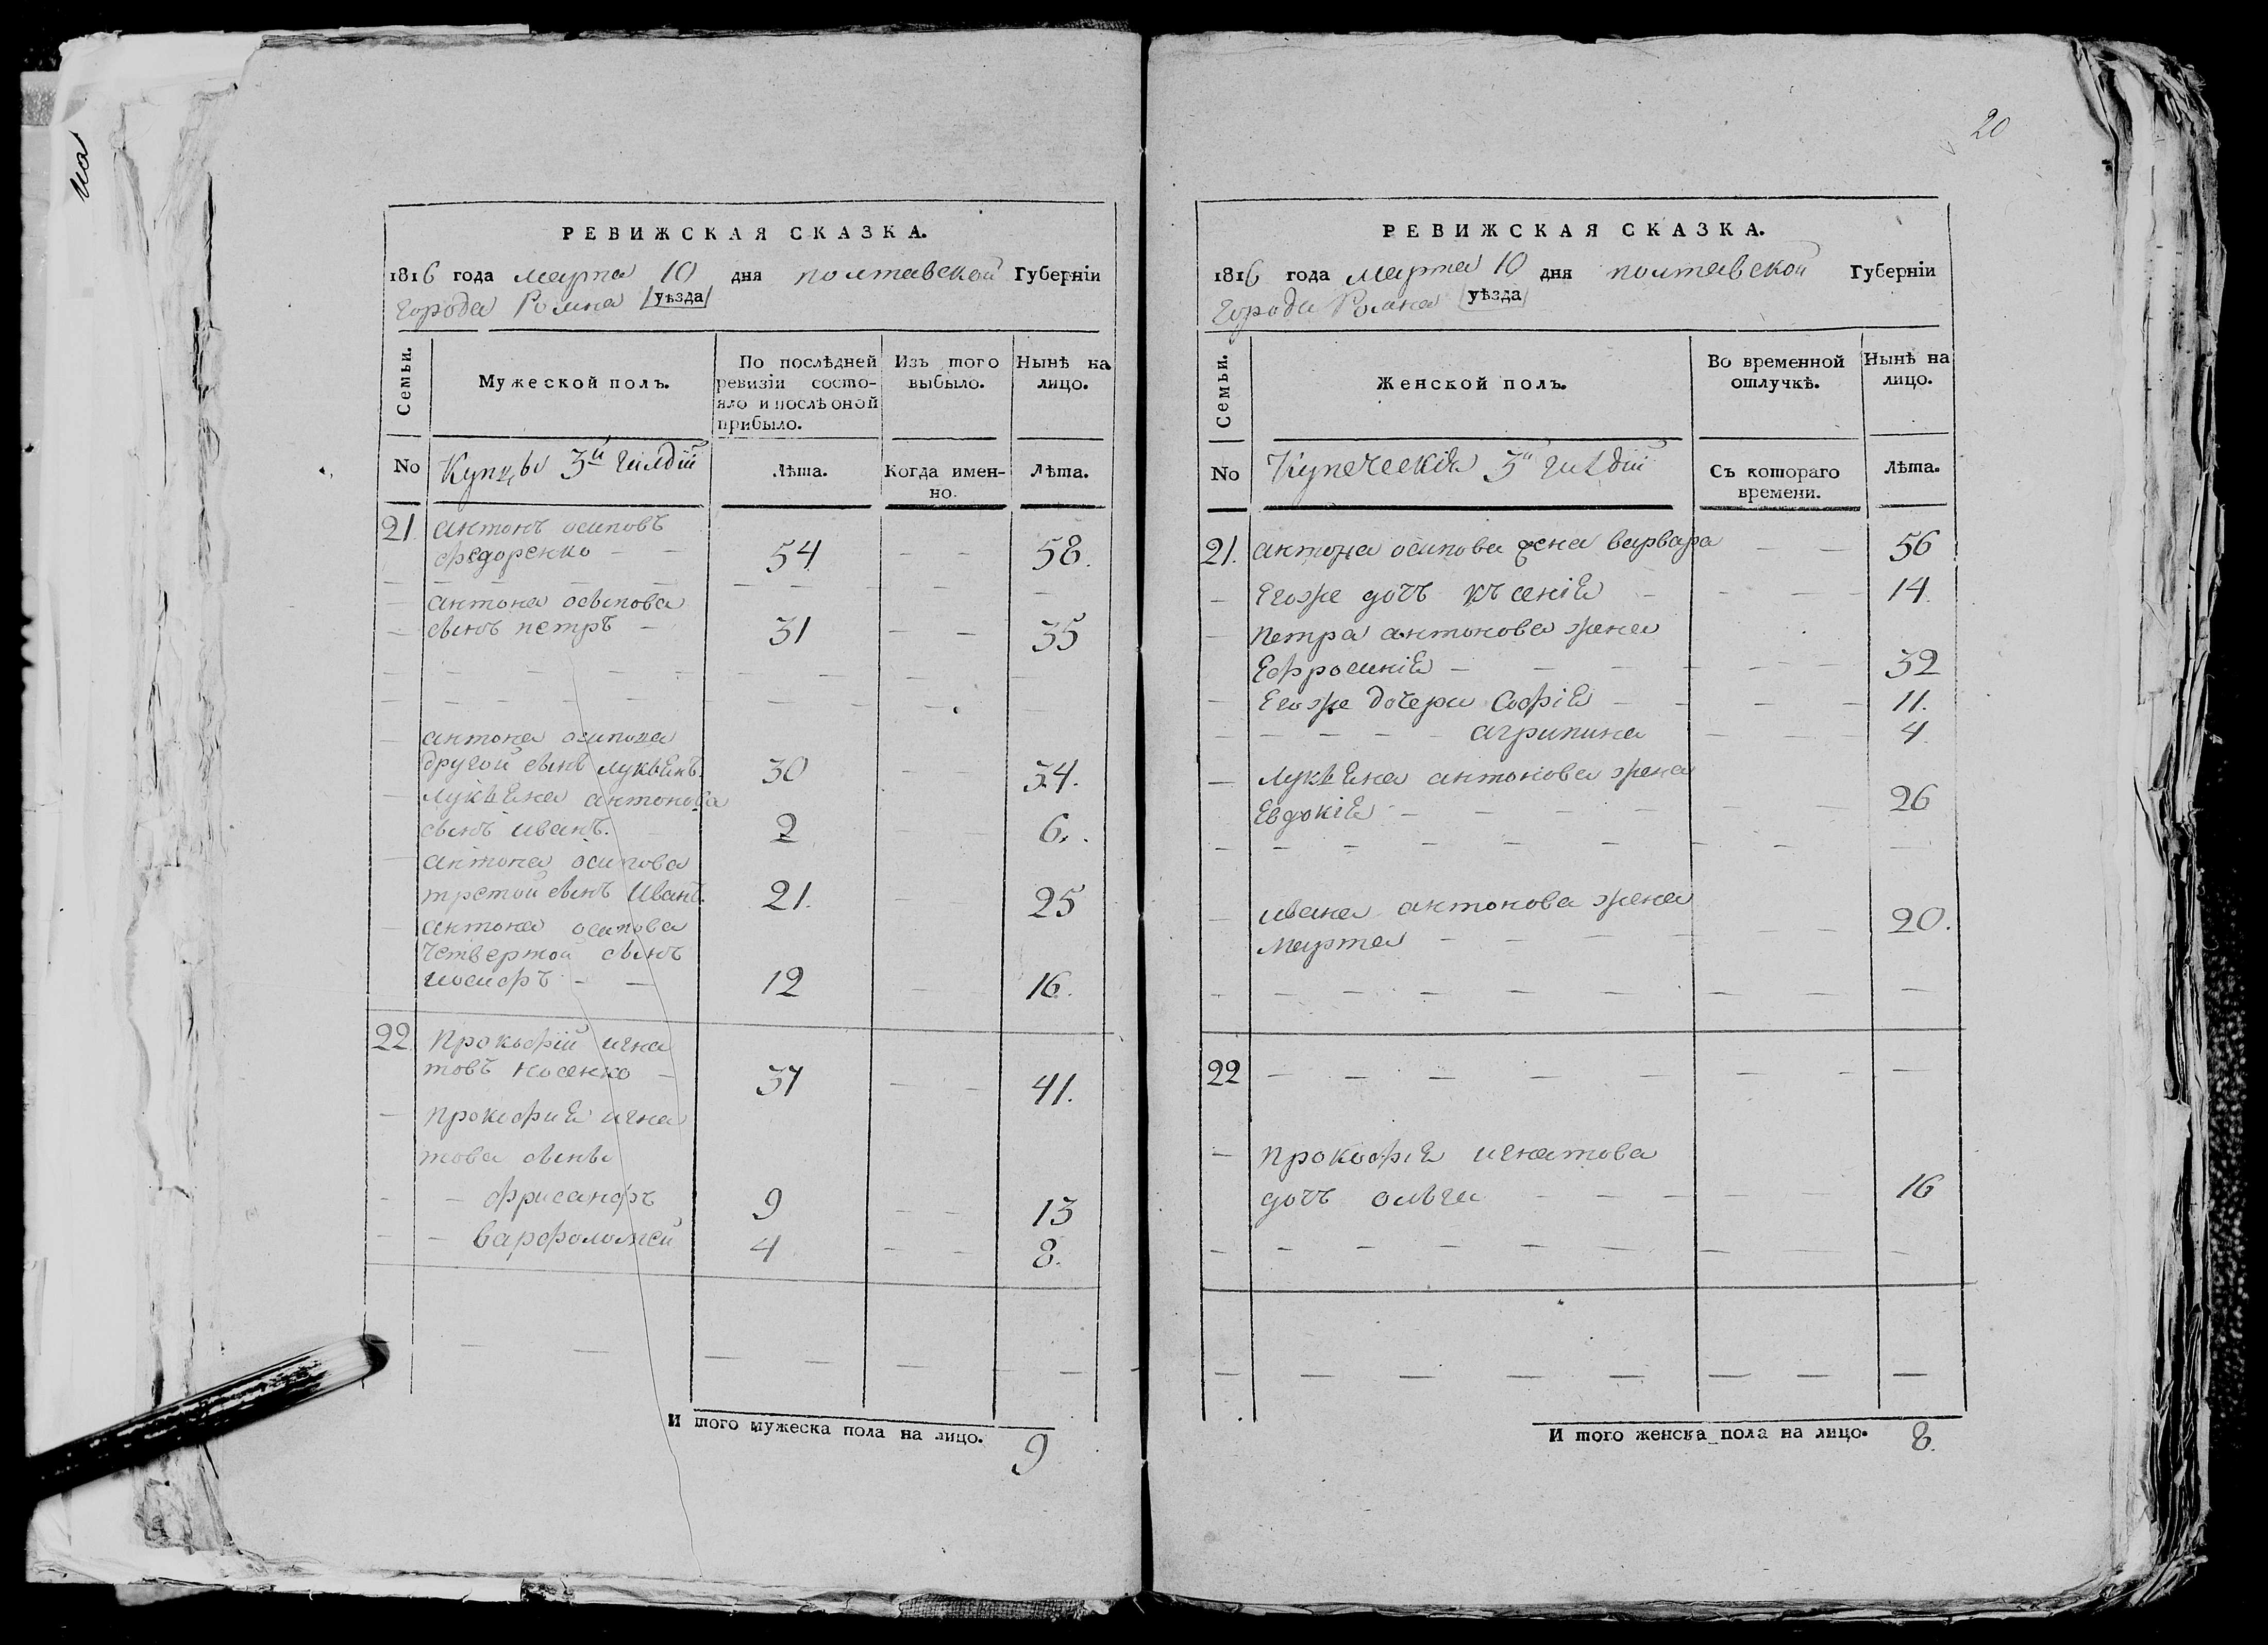 на
РЕВИЖСКАЯ СКАЗКА.
1816 года марта 10 дня полтавской Губерніи
города Ромна уѣзда
Семьи.
Мужеской полъ.
По послѣдней ревизіи состояло и послѣ оной прибыло.
Изъ того выбыло.
Нынѣ на лицо.
No
Купцы 3й гилдіи
Лѣта.
Когда именно.
Лѣта.
21. антонъ осиповъ
федоренко — — 54 — — 58.
антона осипова
сынъ петръ — 31 — — 35
антона осипова
другой сынъ лукьянъ. 30 — — 34.
лукьяна антонова
сынъ иванъ. 2 6.
антона осипова
третой сынъ Иванъ. 21. — 25
антона осипова
четвертой сынъ
иосифъ — — 12 — 16.
22. Прокофій игна
товъ косенко — 37 — — 41.
прокофия игна
това сыны
— фрисанфъ 9 — — 13
— варфоломей 4 — — 8.
И того мужеска пола на лицо. 9
20
РЕВИЖСКАЯ СКАЗКА.
1816 года марта 10 дня полтавской Губерніи
города Ромна уѣзда
Семьи.
Женской полъ.
Во временной отлучкѣ.
Нынѣ на лицо.
No
Купеческія 3й гилдіи
Съ котораго времени.
Лѣта.
21. антона осипова жена варвара — — 56
— Егоже дочъ ксенія — — — 14.
— петра антонова жена
Ефросинія — — — — 32
— Егоже дочери софія — — — 11.
— — — — агрипина — — 4.
— лукьяна антонова жена
Евдокія — — — — 26
— ивана антонова жена
марта — — — — 20.
22 — — — — —
— прокофія игнатова
дочъ ольга — — — 16
И того женска пола на лицо. 8.